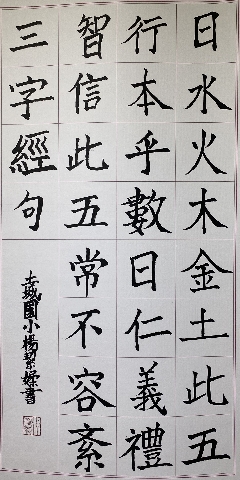 日水火木金土此五
行本乎數曰仁義禮
智信此五常不容紊
三字經句
國小楊
書